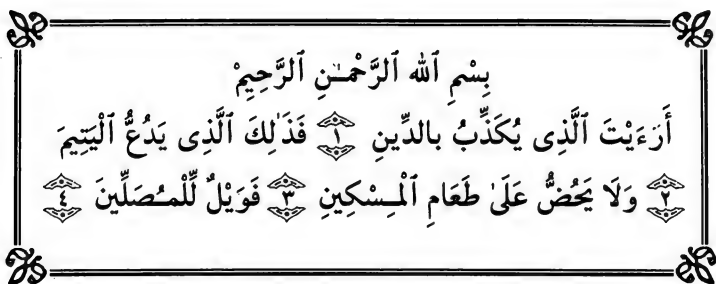 بِسْمِ ٱلله ٱلرَّحْمَـٰنِ ٱلرَّحِيمْ
أَرَءَيْتَ ٱلَّذِى يُكَذِّبُ بالدِّينِ ١ فَذَٰلِكَ ٱلَّذِى يَدُعُّ ٱلْيَتِيمَ
٢ وَلَا يَحُضُّ عَلَىٰ طَعَامِ ٱلْمِسْكِينِ ٣ فَوَيْلٌ لِّلْمُصَلِّينَ ٤